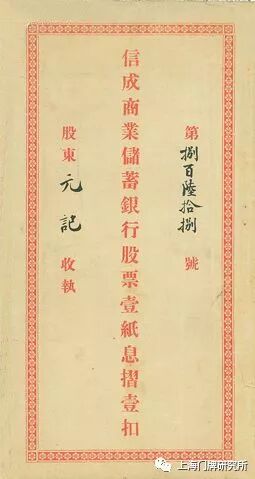 第捌百陸拾捌號
信成商業儲蓄銀行股票壹紙息摺壹扣
股東元記收執
上海门牌研究所